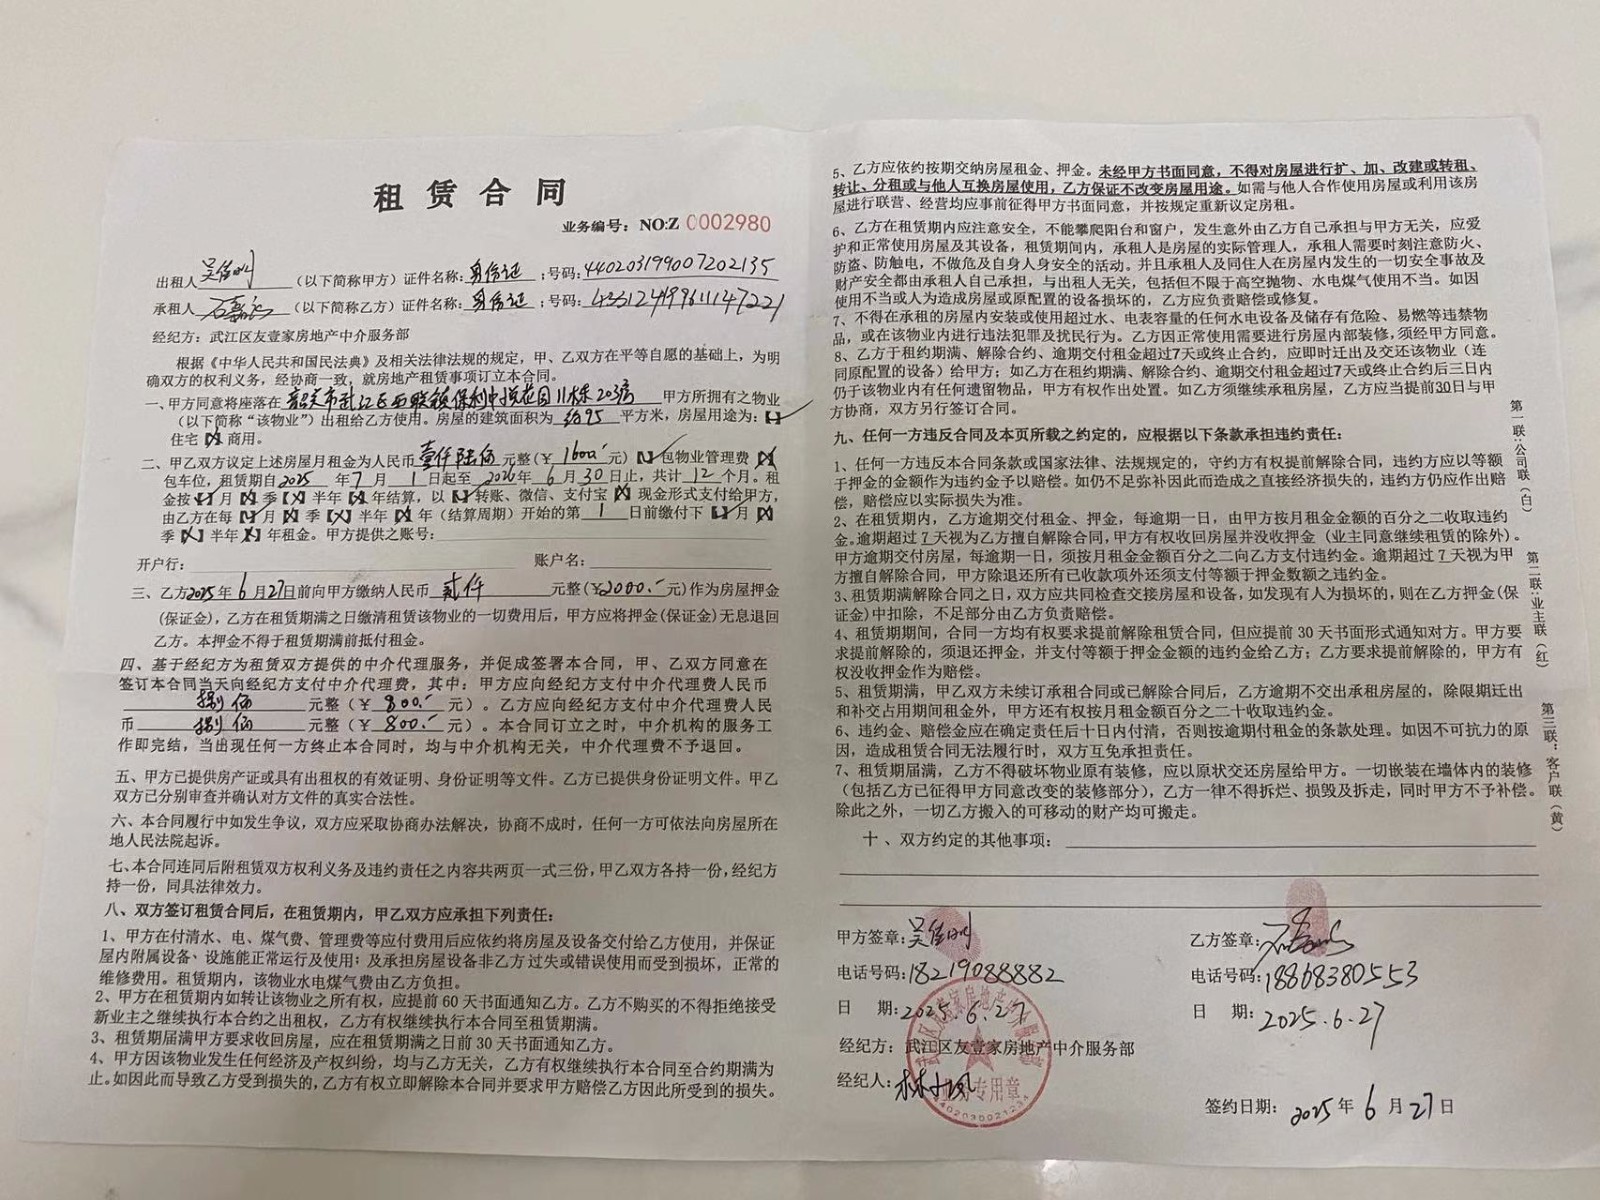 租赁合同
业务编号：NO:Z 0002980
出租人（以下简称甲方）证件名称：身份证；号码：440203199007202135
承租人（以下简称乙方）证件名称：身份证；号码：433124199611147221
经纪方：武江区友壹家房地产中介服务部
根据《中华人民共和国民法典》及相关法律法规的规定，甲、乙双方在平等自愿的基础上，为明
确双方的权利义务，经协商一致，就房地产租赁事项订立本合同。
一、甲方同意将座落在韶关市武江区西联镇保利中悦花园11栋203房甲方所拥有之物业
（以下简称“该物业”）出租给乙方使用。房屋的建筑面积为约95平方米，房屋用途为：【✓】
住宅【X】商用。
二、甲乙双方议定上述房屋月租金为人民币壹仟陆佰元整（￥1600.-元）【✓】包物业管理费【X】
包车位，租赁期自2025年7月1日起至2026年6月30日止，共计12个月。租
金按【✓】月【X】季【X】半年【X】年结算，以【✓】转账、微信、支付宝【X】现金形式支付给甲方，
由乙方在每【✓】月【X】季【X】半年【X】年（结算周期）开始的第1日前缴付下【✓】月【X】
季【X】半年【X】年租金。甲方提供之账号：
开户行： 账户名：
三、乙方2025年6月27日前向甲方缴纳人民币贰仟元整（￥2000.-元）作为房屋押金
(保证金)，乙方在租赁期满之日缴清租赁该物业的一切费用后，甲方应将押金(保证金)无息退回
乙方。本押金不得于租赁期满前抵付租金。
四、基于经纪方为租赁双方提供的中介代理服务，并促成签署本合同，甲、乙双方同意在
签订本合同当天向经纪方支付中介代理费，其中：甲方应向经纪方支付中介代理费人民币
捌佰元整（￥800.-元）。乙方应向经纪方支付中介代理费人民
币捌佰元整（￥800.-元）。本合同订立之时，中介机构的服务工
作即完结，当出现任何一方终止本合同时，均与中介机构无关，中介代理费不予退回。
五、甲方已提供房产证或具有出租权的有效证明、身份证明等文件。乙方已提供身份证明文件。甲乙
双方已分别审查并确认对方文件的真实合法性。
六、本合同履行中如发生争议，双方应采取协商办法解决，协商不成时，任何一方可依法向房屋所在
地人民法院起诉。
七、本合同连同后附租赁双方权利义务及违约责任之内容共两页一式三份，甲乙双方各持一份，经纪方
持一份，同具法律效力。
八、双方签订租赁合同后，在租赁期内，甲乙双方应承担下列责任：
1、甲方在付清水、电、煤气费、管理费等应付费用后应依约将房屋及设备交付给乙方使用，并保证
屋内附属设备、设施能正常运行及使用；及承担房屋设备非乙方过失或错误使用而受到损坏，正常的
维修费用。租赁期内，该物业水电煤气费由乙方负担。
2、甲方在租赁期内如转让该物业之所有权，应提前60天书面通知乙方。乙方不购买的不得拒绝接受
新业主之继续执行本合约之出租权，乙方有权继续执行本合同至租赁期满。
3、租赁期届满甲方要求收回房屋，应在租赁期满之日前30天书面通知乙方。
4、甲方因该物业发生任何经济及产权纠纷，均与乙方无关，乙方有权继续执行本合同至合约期满为
止。如因此而导致乙方受到损失的，乙方有权立即解除本合同并要求甲方赔偿乙方因此所受到的损失。
5、乙方应依约按期交纳房屋租金、押金。未经甲方书面同意，不得对房屋进行扩、加、改建或转租、
转让、分租或与他人互换房屋使用，乙方保证不改变房屋用途。如需与他人合作使用房屋或利用该房
屋进行联营、经营均应事前征得甲方书面同意，并按规定重新议定房租。
6、乙方在租赁期内应注意安全，不能攀爬阳台和窗户，发生意外由乙方自己承担与甲方无关，应爱
护和正常使用房屋及其设备，租赁期间内，承租人是房屋的实际管理人，承租人需要时刻注意防火、
防盗、防触电，不做危及自身人身安全的活动。并且承租人及同住人在房屋内发生的一切安全事故及
财产安全都由承租人自己承担，与出租人无关，包括但不限于高空抛物、水电煤气使用不当。如因
使用不当或人为造成房屋或原配置的设备损坏的，乙方应负责赔偿或修复。
7、不得在承租的房屋内安装或使用超过水、电表容量的任何水电设备及储存有危险、易燃等违禁物
品，或在该物业内进行违法犯罪及扰民行为。乙方因正常使用需要进行房屋内部装修，须经甲方同意。
8、乙方于租约期满、解除合约、逾期交付租金超过7天或终止合约，应即时迁出及交还该物业（连
同原配置的设备）给甲方；如乙方在租约期满、解除合约、逾期交付租金超过7天或终止合约后三日内
仍于该物业内有任何遗留物品，甲方有权作出处置。如乙方须继续承租房屋，乙方应当提前30日与甲
方协商，双方另行签订合同。
九、任何一方违反合同及本页所载之约定的，应根据以下条款承担违约责任：
1、任何一方违反本合同条款或国家法律、法规规定的，守约方有权提前解除合同，违约方应以等额
于押金的金额作为违约金予以赔偿。如仍不足弥补因此而造成之直接经济损失的，违约方仍应作出赔
偿，赔偿应以实际损失为准。
2、在租赁期内，乙方逾期交付租金、押金，每逾期一日，由甲方按月租金金额的百分之二收取违约
金。逾期超过7天视为乙方擅自解除合同，甲方有权收回房屋并没收押金（业主同意继续租赁的除外）。
甲方逾期交付房屋，每逾期一日，须按月租金金额百分之二向乙方支付违约金。逾期超过7天视为甲
方擅自解除合同，甲方除退还所有已收款项外还须支付等额于押金数额之违约金。
3、租赁期满解除合同之日，双方应共同检查交接房屋和设备，如发现有人为损坏的，则在乙方押金(保
证金)中扣除，不足部分由乙方负责赔偿。
4、租赁期期间，合同一方均有权要求提前解除租赁合同，但应提前30天书面形式通知对方。甲方要
求提前解除的，须退还押金，并支付等额于押金金额的违约金给乙方；乙方要求提前解除的，甲方有
权没收押金作为赔偿。
5、租赁期满，甲乙双方未续订承租合同或已解除合同后，乙方逾期不交出承租房屋的，除限期迁出
和补交占用期间租金外，甲方还有权按月租金额百分之二十收取违约金。
6、违约金、赔偿金应在确定责任后十日内付清，否则按逾期付租金的条款处理。如因不可抗力的原
因，造成租赁合同无法履行时，双方互免承担责任。
7、租赁期届满，乙方不得破坏物业原有装修，应以原状交还房屋给甲方。一切嵌装在墙体内的装修
（包括乙方已征得甲方同意改变的装修部分），乙方一律不得拆烂、损毁及拆走，同时甲方不予补偿。
除此之外，一切乙方搬入的可移动的财产均可搬走。
十、双方约定的其他事项：
第一联：公司联（白）
第二联：业主联（红）
第三联：客户联（黄）
甲方签章： 乙方签章：
电话号码：18219088882 电话号码：18868380553
日 期：2025.6.27 日 期：2025.6.27
经纪方：武江区友壹家房地产中介服务部
经纪人：林小凤
业务专用章
4402030021234
签约日期：2025年6月27日